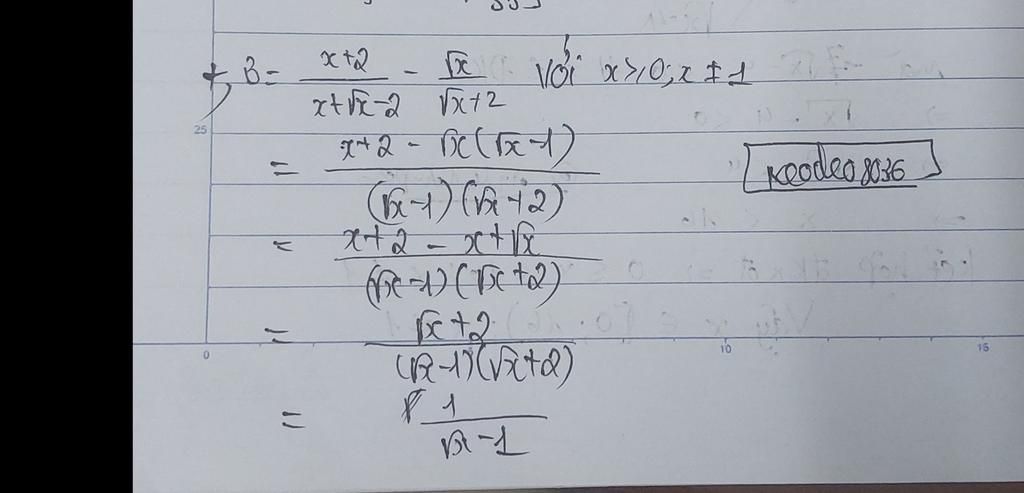 + B = \frac{x+2}{x+√x-2} - \frac{√x}{√x+2} với x ≥ 0; x ≠ 1
25
= \frac{x+2-√x(√x-1)}{(√x-1)(√x+2)}
keodeo8036
= \frac{x+2-x+√x}{(√x-1)(√x+2)}
= \frac{√x+2}{(√x-1)(√x+2)}
0 10 15
= \frac{1}{√x-1}